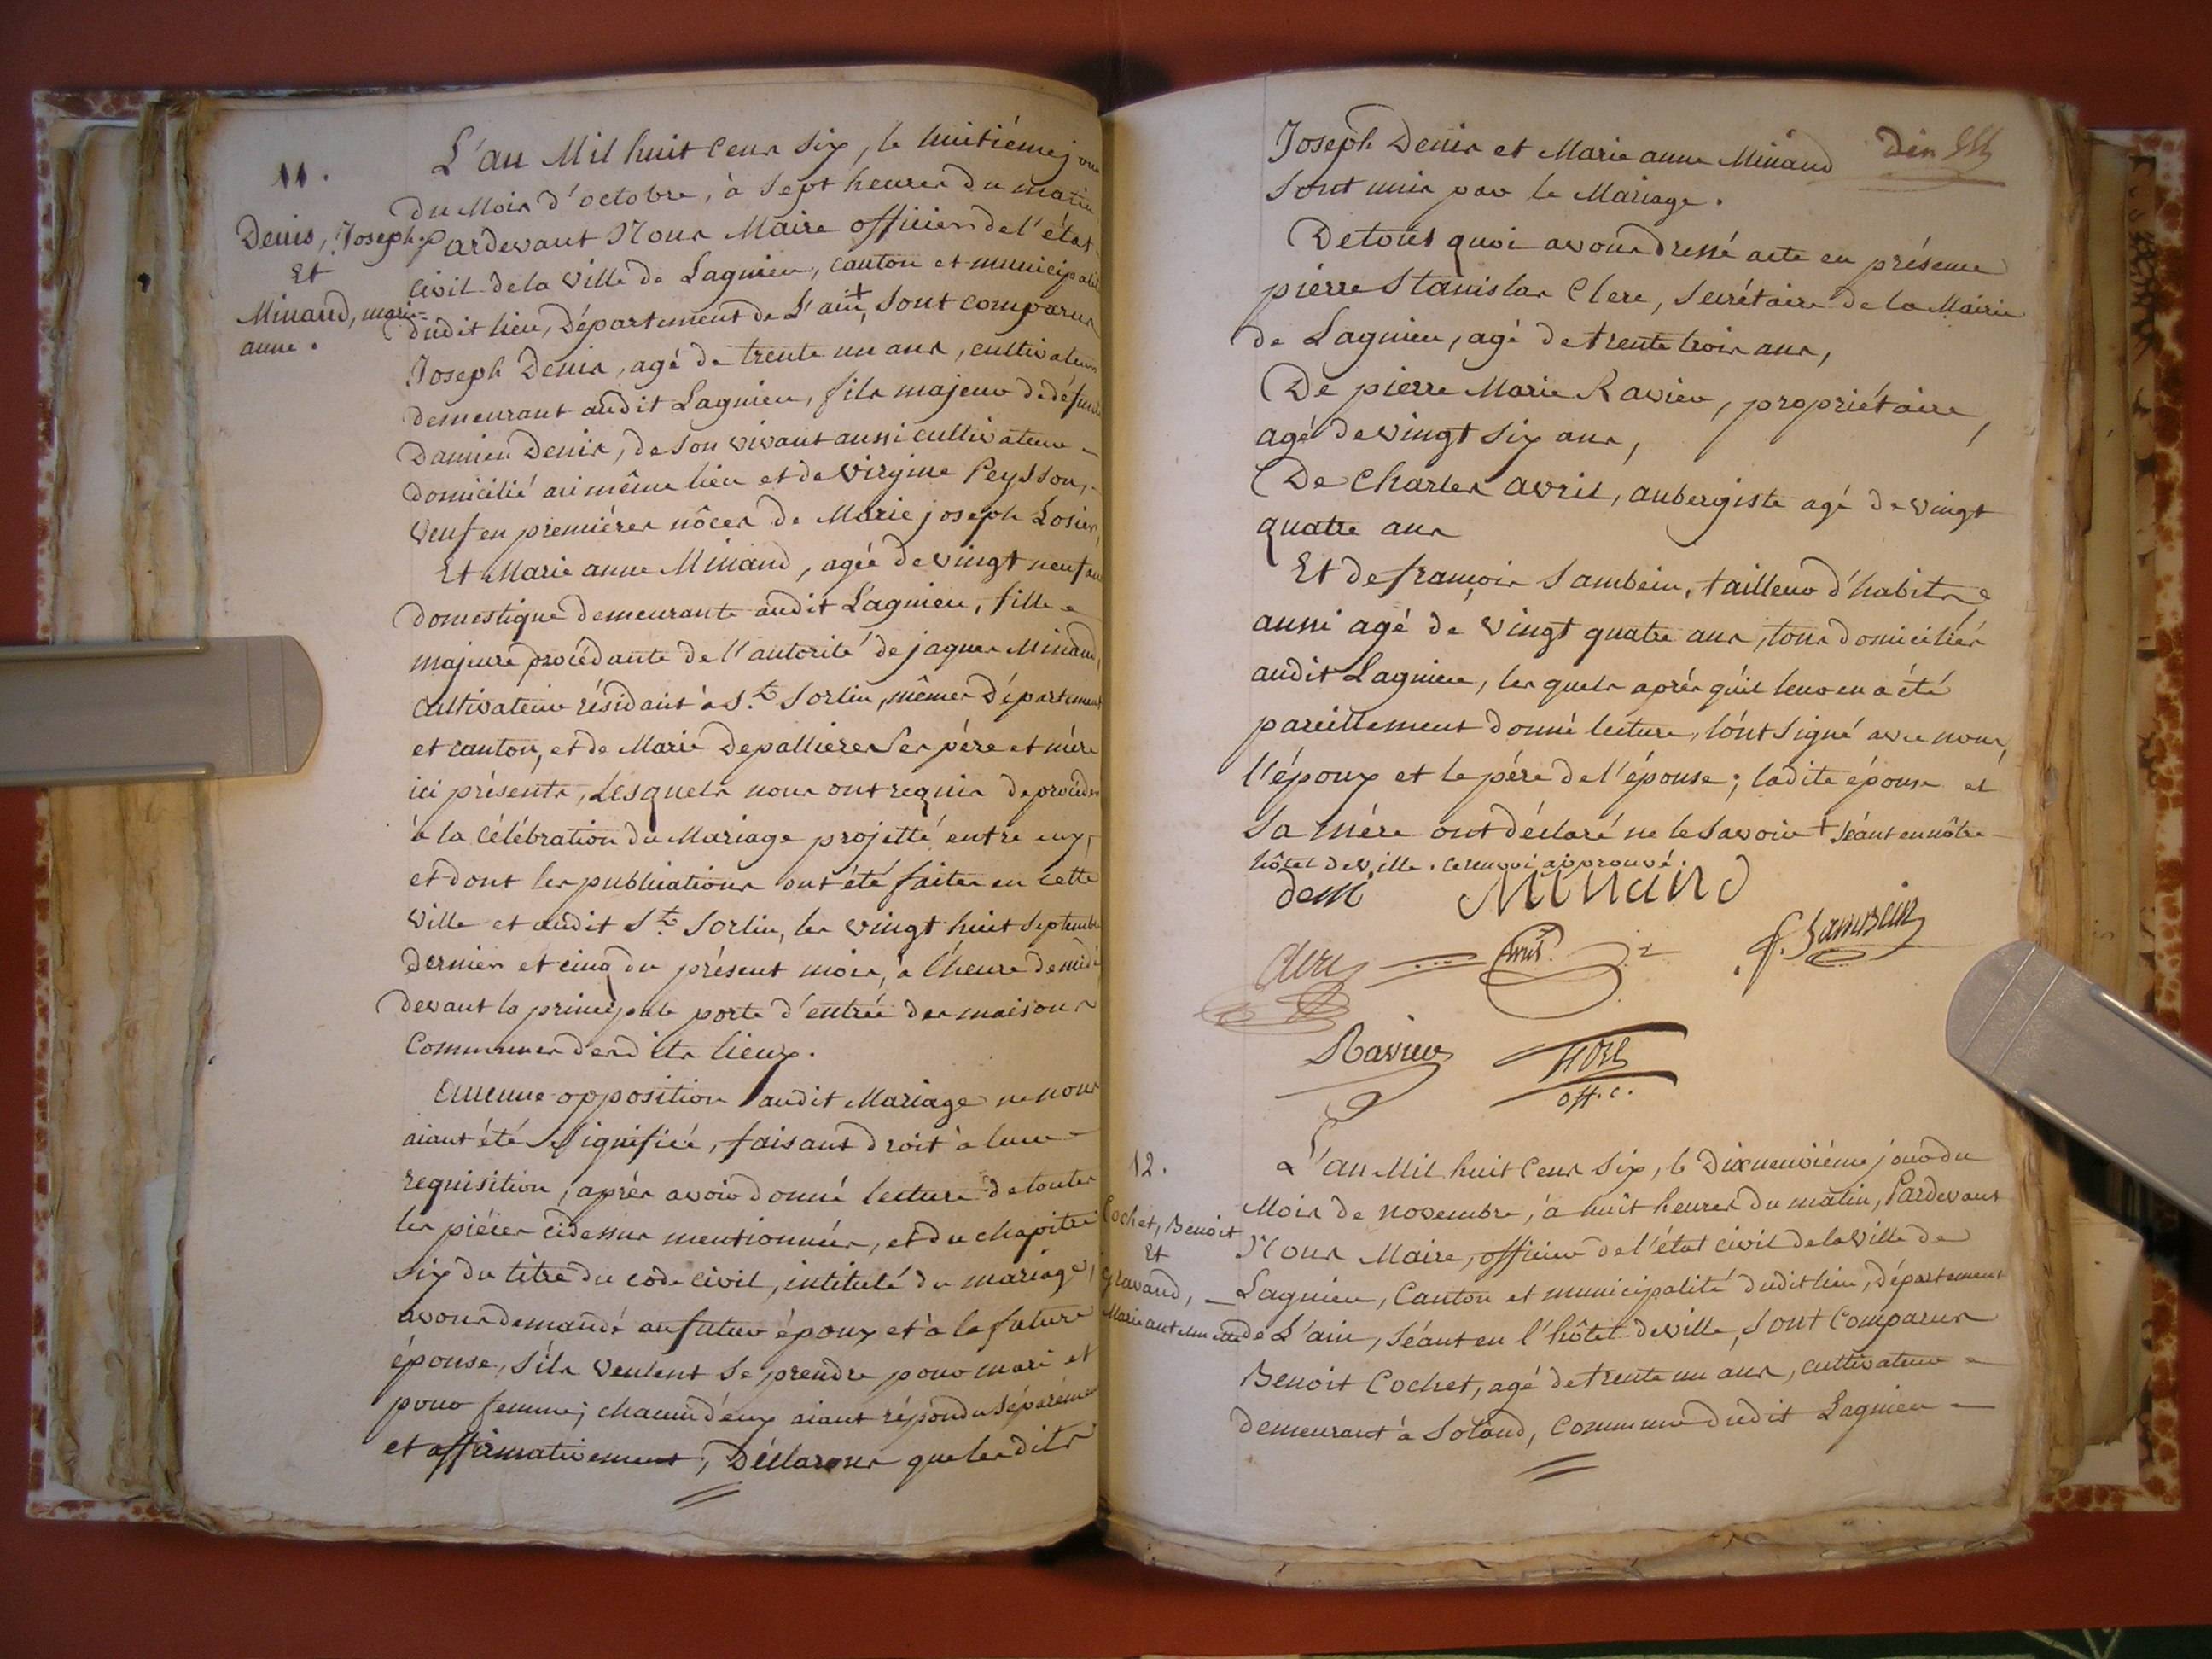 11.
Denis, Joseph.
Et
Minand, marie-
anne.
L'an Mil huit Cens Six, le huitiéme jour
du Mois d'octobre, à Sept heures du matin
Pardevant Nous Maire officier de l'état
civil de la ville de Lagnieu, canton et municipalité
dudit lieu, Département de L'ain,+ Sont comparus
Joseph Denis, agé de trente un ans, cultivateur
demeurant audit Lagnieu, fils majeur de défunt
Damien Denis, de Son vivant aussi cultivateur
domicilié au même lieu et de Virgine Peysson,
Veuf en premiéres nôces de Marie joseph Losier,
Et Marie anne Minand, agée de vingt neuf ans
domestique demeurante audit Lagnieu, fille
majeure procédante de l'autorité de jaques Minand,
cultivateur résidant à St. Sorlin, mêmes Département
et canton, et de Marie Depallieres Ses pére et mére
ici présents, Lesquels nous ont requis de procéder
à la Célébration du Mariage projetté entre eux,
et dont les publications ont été faites en cette
Ville et audit St. Sorlin, les vingt huit Septembre
dernier et cinq du présent mois, à l'heure de midi
devant la principale porte d'entrée des maisons
Communes desdits lieux.
Aucune opposition audit Mariage ne nous
aiant été Signifiée, faisant droit à leur
requisition, aprés avoir donné lecture de toutes
les piéces cidessus mentionnées, et du chapitre
Six du titre du code civil, intitulé du mariage,
avons demandé au futur époux et à la future
épouse, S'ils veulent Se prendre pour mari et
pour femme; chacun d'eux aiant répondu Séparément
et affirmativement, Déclarons que lesdits
Joseph Denis et Marie anne Minand
Sont unis par le Mariage.
De tout quoi avons dressé acte en présence
pierre Stanislas Clerc, Secrétaire de la Mairie
de Lagnieu, agé de trente trois ans,
De pierre Marie Ravier, propriétaire,
agé de vingt Six ans,
De Charles avril, aubergiste agé de vingt
quatre ans
Et de françois Sambein, tailleur d'habits,
aussi agé de vingt quatre ans, tous domiciliés
audit Lagnieu, les quels aprés qu'il leur en a été
pareillement donné lecture, l'ont Signé avec nous,
l'époux et le pére de l'épouse; ladite épouse et
Sa mére ont déclaré ne le Savoir + Séant en nôtre
hôtel de ville. ce renvoi approuvé.
deni Minand
Clerc F. Sambein
Ravier
off. c.
12.
Cochet, Benoit
Et
Gravand,
Marie antoinette
L'an Mil huit Cens Six, le Dixneuviéme jour du
Mois de novembre, à huit heures du matin, Pardevant
Nous Maire, officier de l'état civil de la Ville de
Lagnieu, Canton et municipalité dudit lieu, Département
de L'ain, Séant en l'hôtel de ville, Sont Comparus
Benoit Cochet, agé de trente un ans, cultivateur
demeurant à Soland, Commune dudit Lagnieu